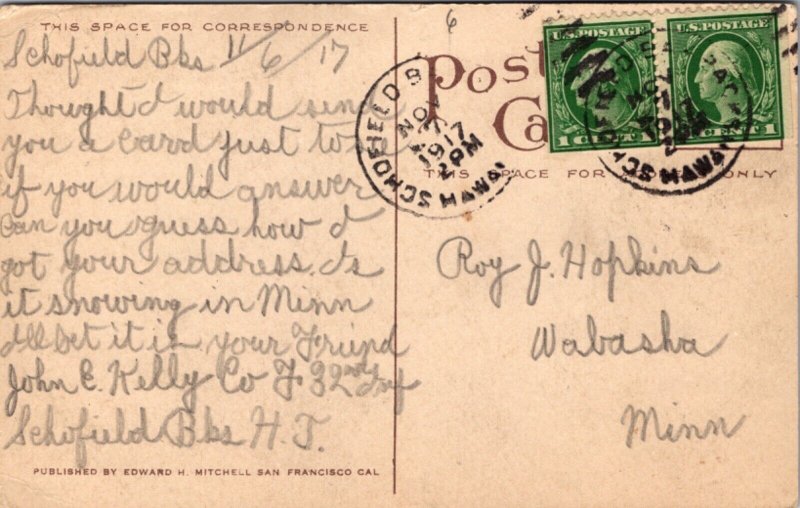 THIS SPACE FOR CORRESPONDENCE
Schofield Bks 11/6/17
Thought I would send
you a card just to se
if you would answer
Can you guess how I
got your address. Is
it snowing in Minn
I'll bet it is your Friend
John E. Kelly Co F 32nd Inf
Schofield Bks H.T.
PUBLISHED BY EDWARD H. MITCHELL SAN FRANCISCO CAL
6
Post
Ca
THIS SPACE FOR ONLY
SCHOFIELD B
NOV
7
1917
2PM
HAWAI
U.S. POSTAGE
1 CENT
U.S. POSTAGE
CENT 1
1917
HAWAI
Roy J. Hopkins
Wabasha
Minn